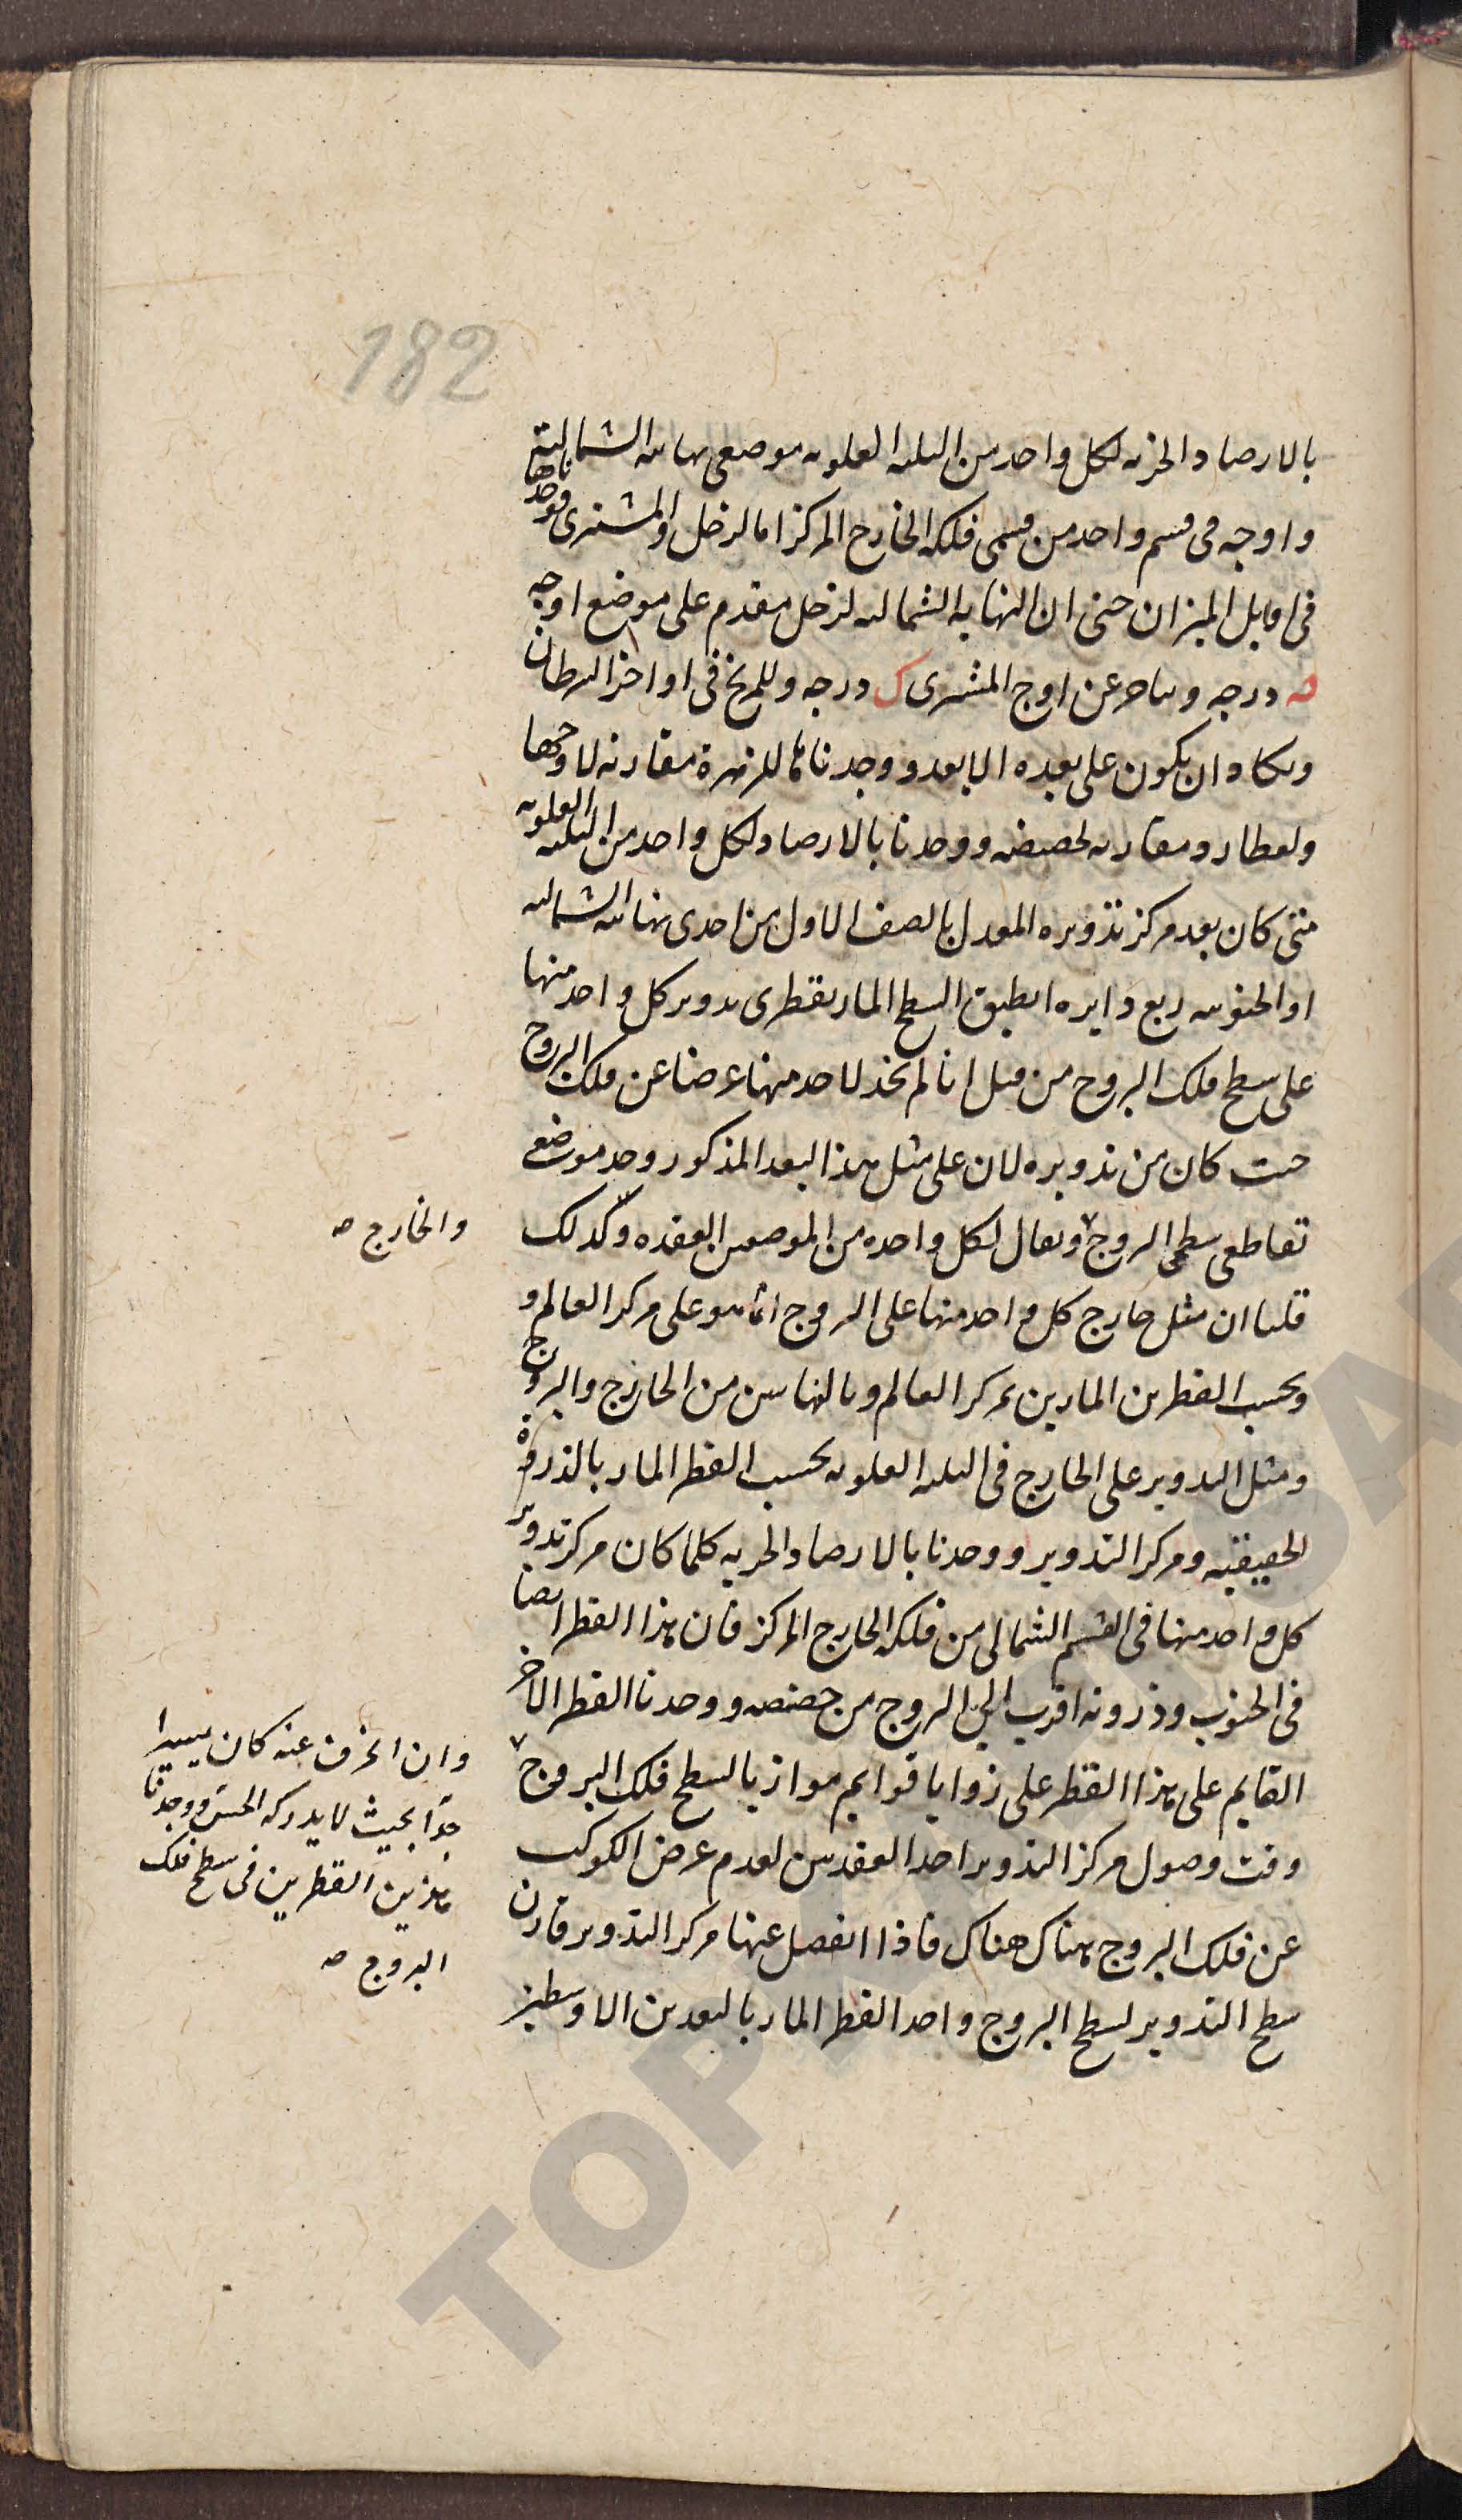 182
بالارصاد الجزئية لكل واحد من الثلثة العلوية موضعى نهايته الشمالية
واوجه فى قسم واحد من قسمى فلكه الخارج المركز اما لزحل والمشترى فوجدناها
فى اوايل الميزان حتى ان النهاية الشمالية لزحل مقدم على موضع اوجه
درجه ويتاخر عن اوج المشترى ك درجه وللمريخ فى اواخر السرطان
ويكاد ان يكون على بعده الابعد ووجدناها للزهرة مقارنه لاوجها
ولعطارد مقارنه لحضيضه ووجدنا بالارصاد لكل واحد من الثلثه العلويه
متى كان بعد مركز تدويره المعدل بالصف الاول من احدى نهايتيه الشماليه
او الجنوبيه ربع دايره انطبق السطح المار بقطرى تدوير كل واحد منها
على سطح فلك البروج من قبل انا لم نجد لاحد منها عرضا عن فلك البروج
حيث كان من تدويره لان على مثل هذا البعد المذكور وجد موضعى
تقاطعى سطحى البروج ويقال لكل واحده من الموضعين العقده وكذلك
والخارج صه
قلنا ان مثل خارج كل واحد منها على البروج انما هو على مركز العالم و
وبحسب القطرين المارين بمركز العالم وبالنهايتين من الخارج والبروج
ومثل التدوير على الخارج فى الثلثه العلويه بحسب القطر المار بالذروة
الحقيقيه ومركز التدوير ووجدنا بالارصاد الجزيه كلما كان مركز تدوير
كل واحد منها فى القسم الشمالى من فلكه الخارج المركز فان هذا القطر ايضا
فى الجنوب وذروته اقرب الى البروج من حضيضه ووجدنا القطر الاخر
القايم على هذا القطر على زوايا قوايم موازيا لسطح فلك البروج
وان انحرف عنه كان يسيرا
جدا بحيث لا يدركه الحس ووجدنا
هذين القطرين فى سطح فلك
البروج صه
وقت وصول مركز التدوير احد العقدتين لعدم عرض الكوكب
عن فلك البروج هناك هناك فاذا انفصل عنها مركز التدوير قارن
سطح التدوير لسطح البروج واحد القطر المار بالبعدين الاوسطين